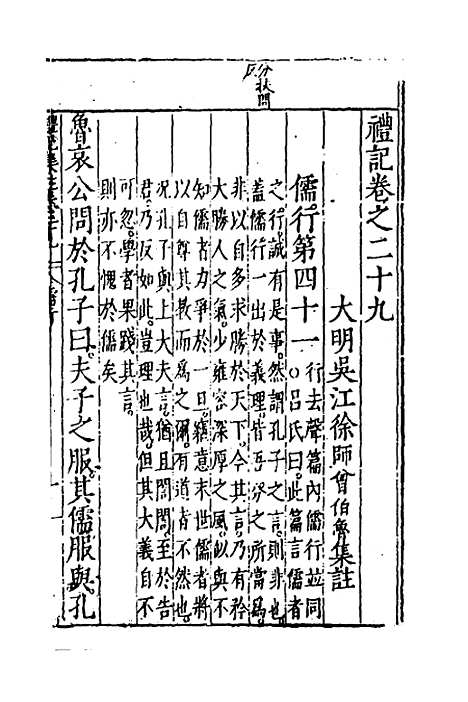 禮記卷之二十九
大明吳江徐師曾伯魯集註
儒行第四十一○行去聲篇內儒行並同
呂氏曰此篇言儒者
之行誠有是事然謂孔子之言則非也
蓋儒行一出於義理皆吾分之所當爲
非以自多求勝於天下今其言乃有矜
大勝人之氣少雍容深厚之風似與不
知儒者力爭於一旦竊意末世儒者將
以自尊其教而爲之爾有道者不然也
況孔子與上大夫言猶且誾誾至於告
君乃反如此豈理也哉但其大義自不
可忽學者果踐其言
則亦不愧於儒矣
魯哀公問於孔子曰夫子之服其儒服與孔
分扶問